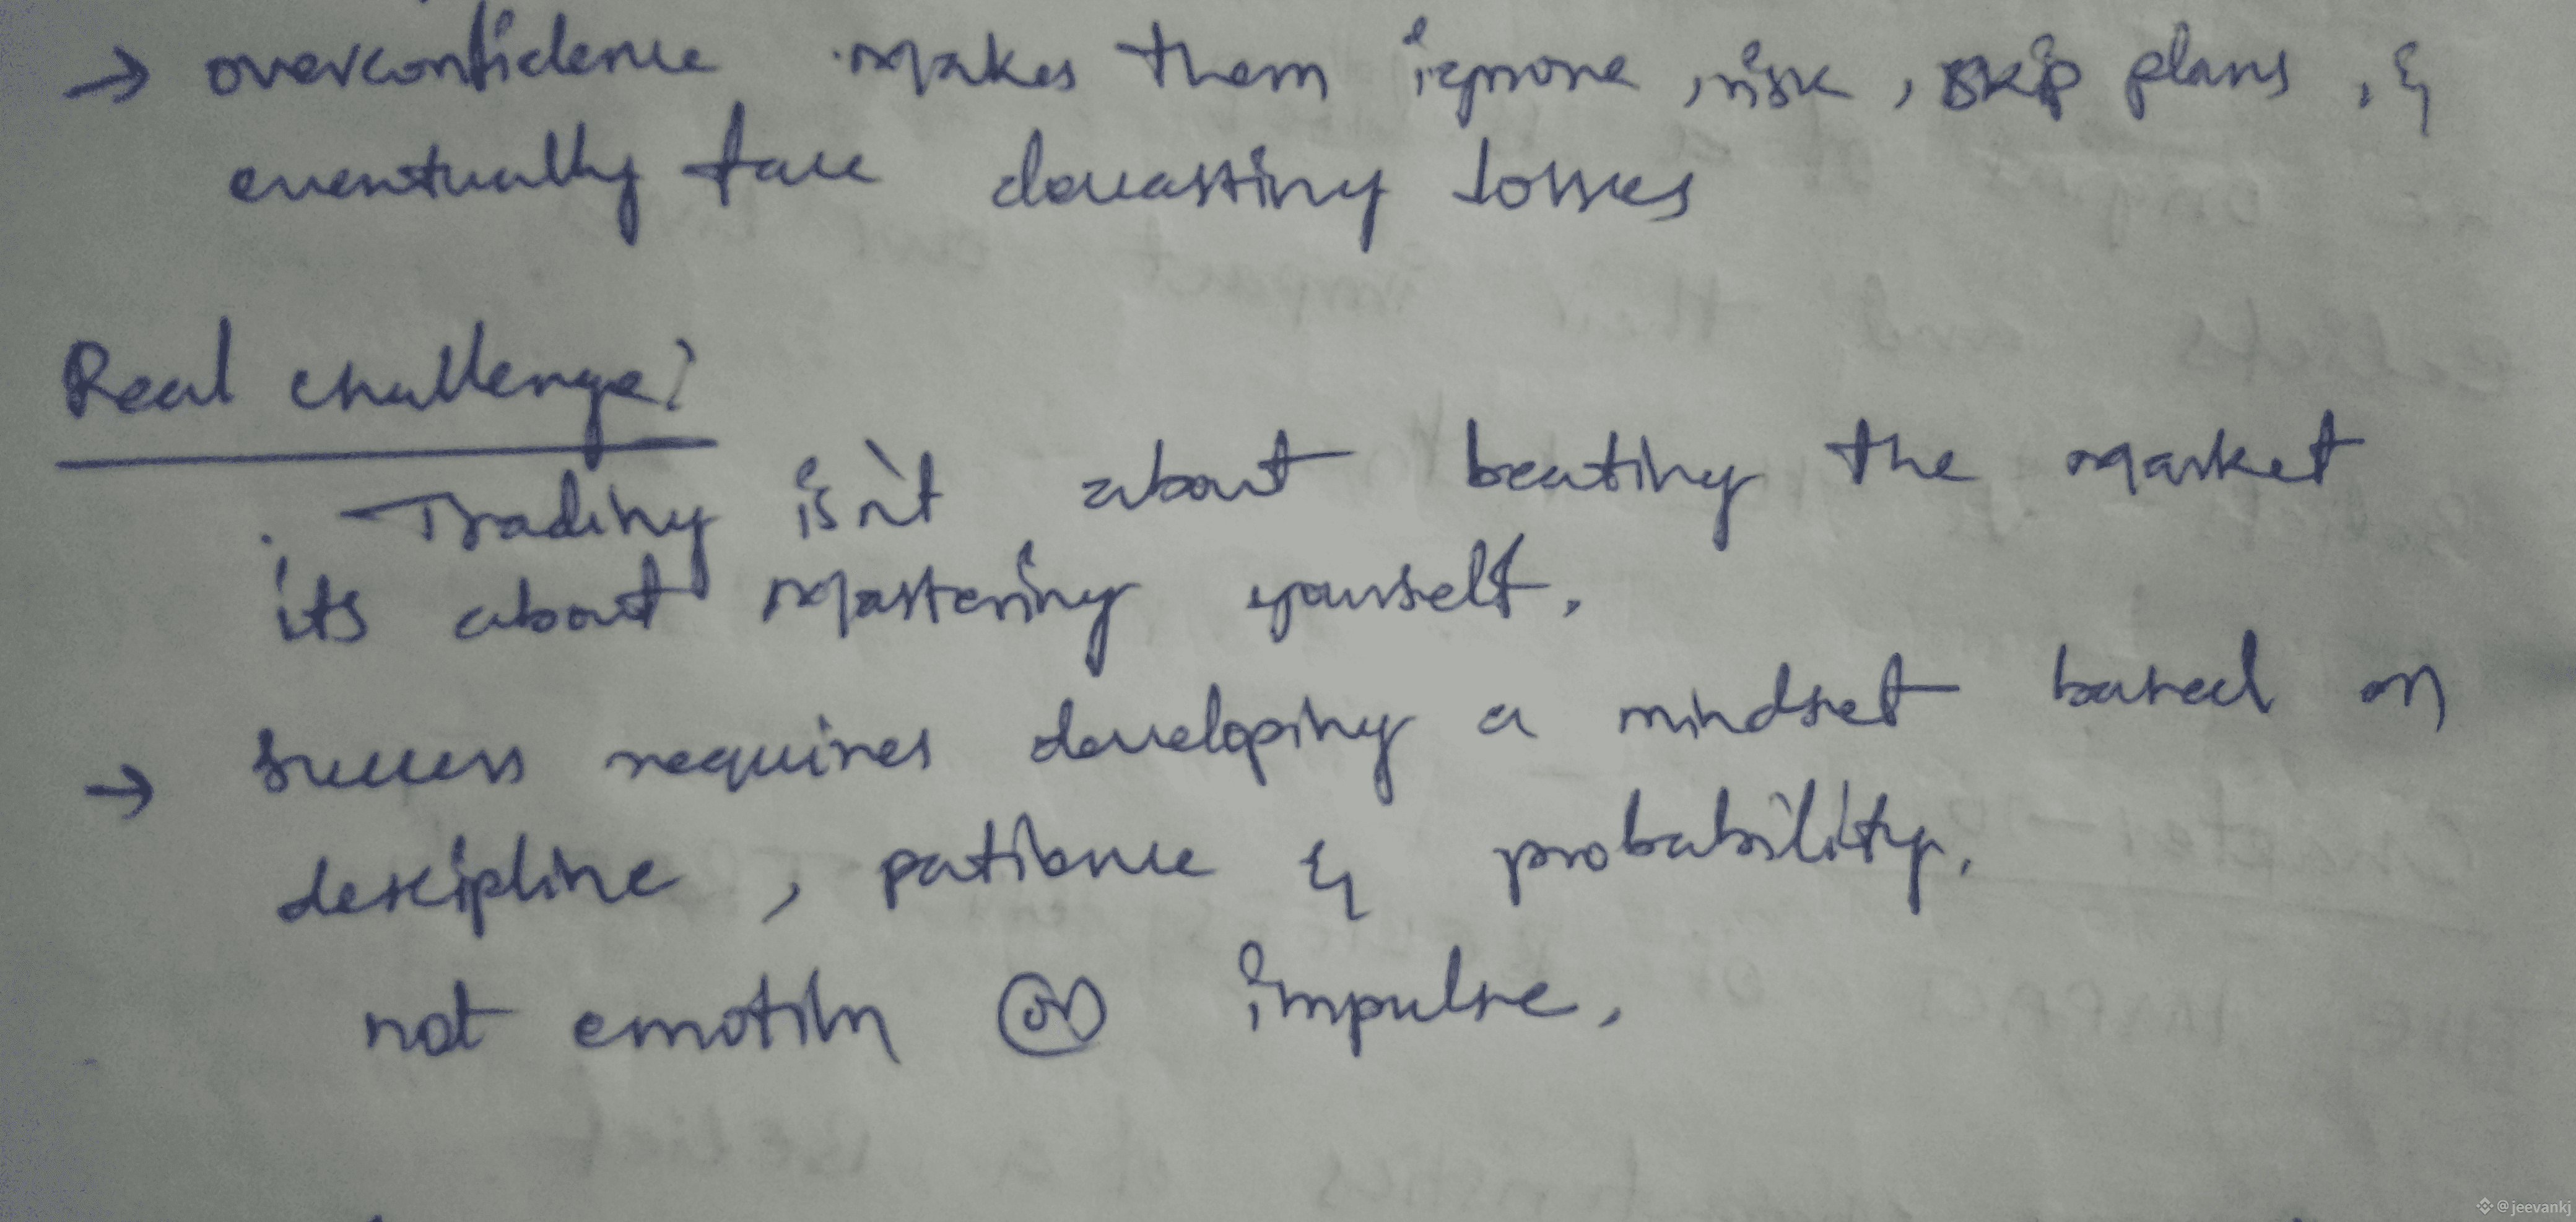 → overconfidence makes them ignore, risk, skip plans, &
eventually face devasting losses
Real challenge?
. Trading isn't about beating the market
its about mastering yourself.
→ Success requires developing a mindset based on
descipline, patience & probability.
not emotion or impulse.
@jeevankj